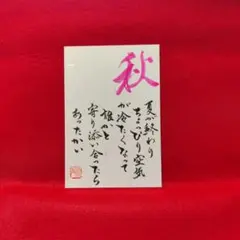 秋
夏が終わり
ちょっぴり空気
が冷たくなって
誰かと
寄り添い合ったら
あったかい